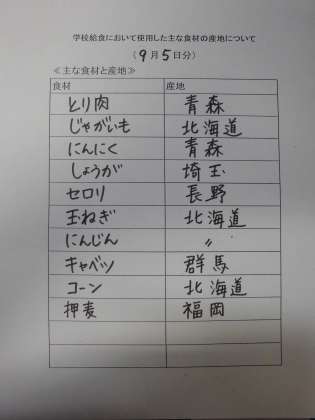 学校給食において使用した主な食材の産地について
(9月5日分)
≪主な食材と産地≫
食材 産地
とり肉 青森
じゃがいも 北海道
にんにく 青森
しょうが 埼玉
セロリ 長野
玉ねぎ 北海道
にんじん 〃
キャベツ 群馬
コーン 北海道
押麦 福岡